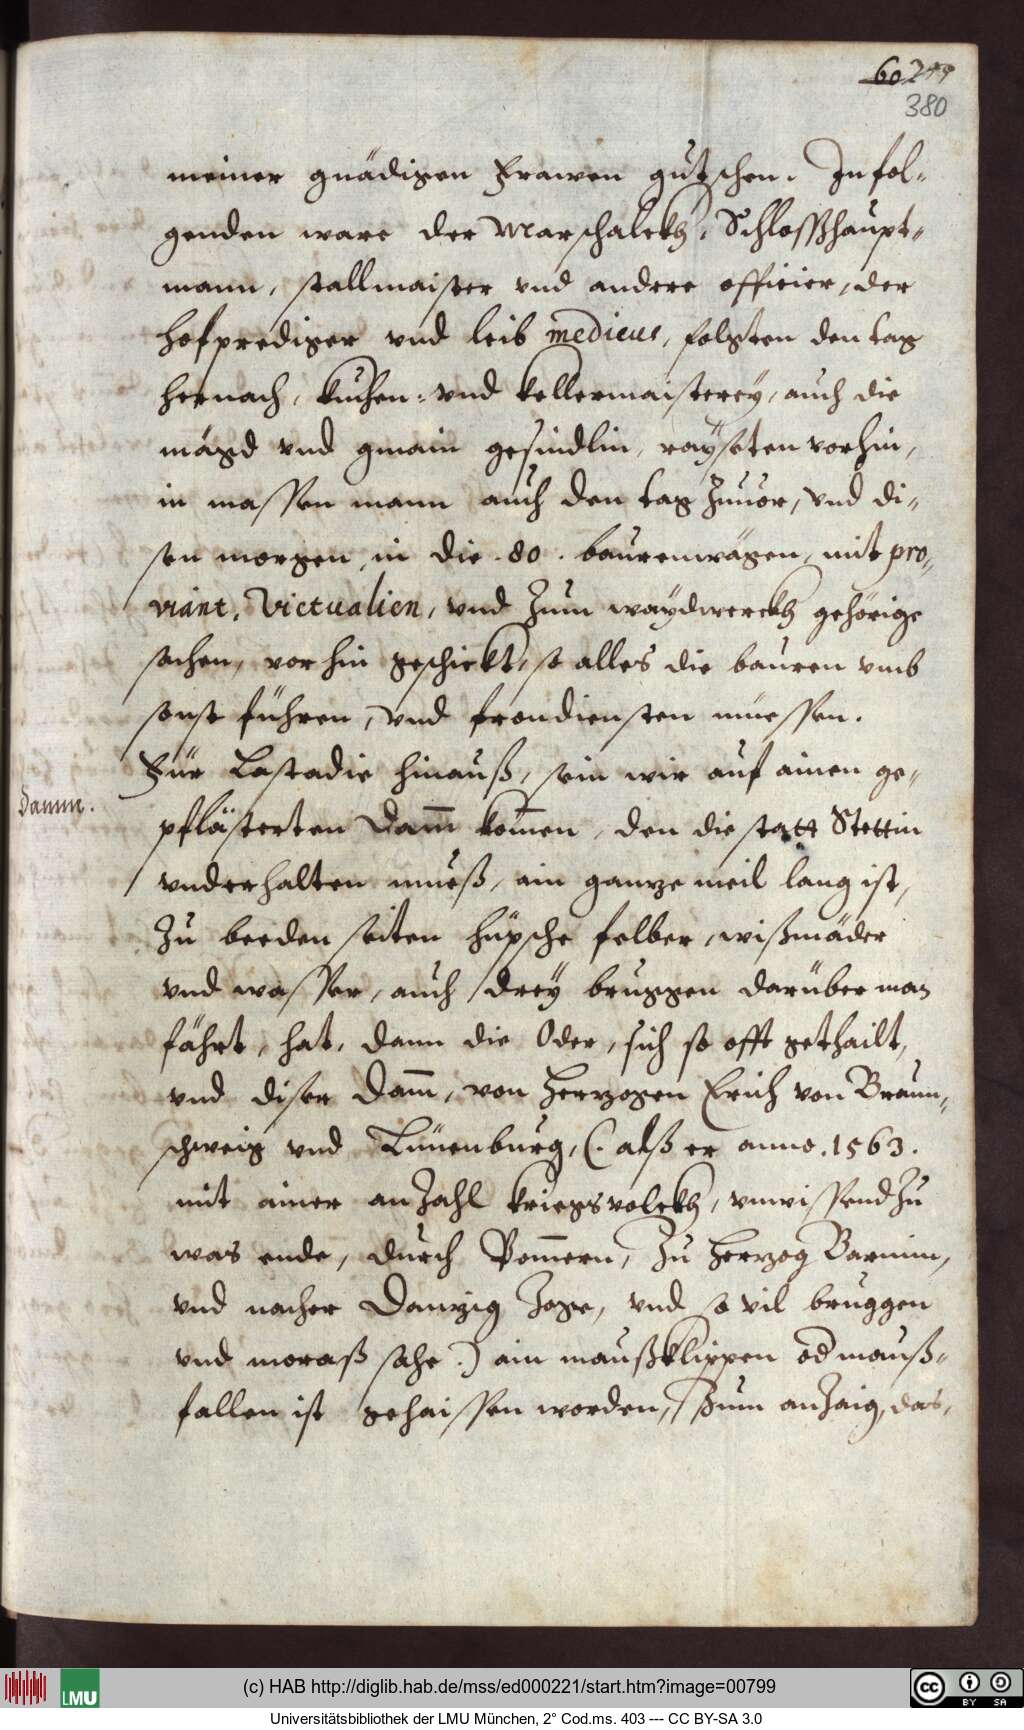 60 299
380
meiner gnädigen Frawen gutschen. In fol-
genden ware der Marschalckh, Schlossßhaupt-
mann, stallmaister vnd andere officier, der
hofprediger vnd leib medicus, folgten den tag
hernach, kuchen- vnd kellermaisterey, auch die
mägd vnd gmain gesindlin, rayseten vorhin,
in massen mann auch den tag zuuor, vnd di-
sen morgen, in die .80. baurenwägen, mit pro-
viant, Victualien, vnd zum waydwerckh gehörige
sachen, vorhin geschickt, so alles die bauren vmb
sonst führen, vnd frondiensten müessen.
Für Lastadie hinauß, sein wir auf ainen ge-
Damm.
pflästerten Dam̄ kom̄en, den die statt Stettin
vnderhalten mueß, ain gantze meil lang ist,
zu beeden seiten hüpsche felber, wißmäder
vnd wasser, auch drey bruggen darüber man
fährt, hat, dann die Oder, sich so offt gethailt,
vnd diser Dam̄, von Hertzogen Erich von Braun-
schweig vnd Lünenburg, (. alß er anno .1563.
mit ainer anzahl kriegsvolckh, vnwissend zu
was ende, durch Pom̄ern, zu Hertzog Barnim,
vnd nacher Dantzig zoge, vnd so vil bruggen
vnd moraß sahe .) ain maußklippen od maus-
fallen ist gehaissen worden, zum anzaig, das,
(c) HAB http://diglib.hab.de/mss/ed000221/start.htm?image=00799
LMU
cc BY SA
Universitätsbibliothek der LMU München, 2° Cod.ms. 403 --- CC BY-SA 3.0